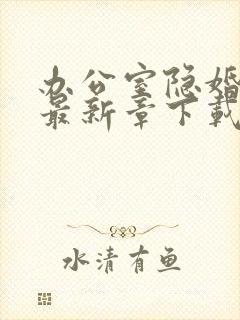 办公室隐婚
最新章下载
水清有鱼